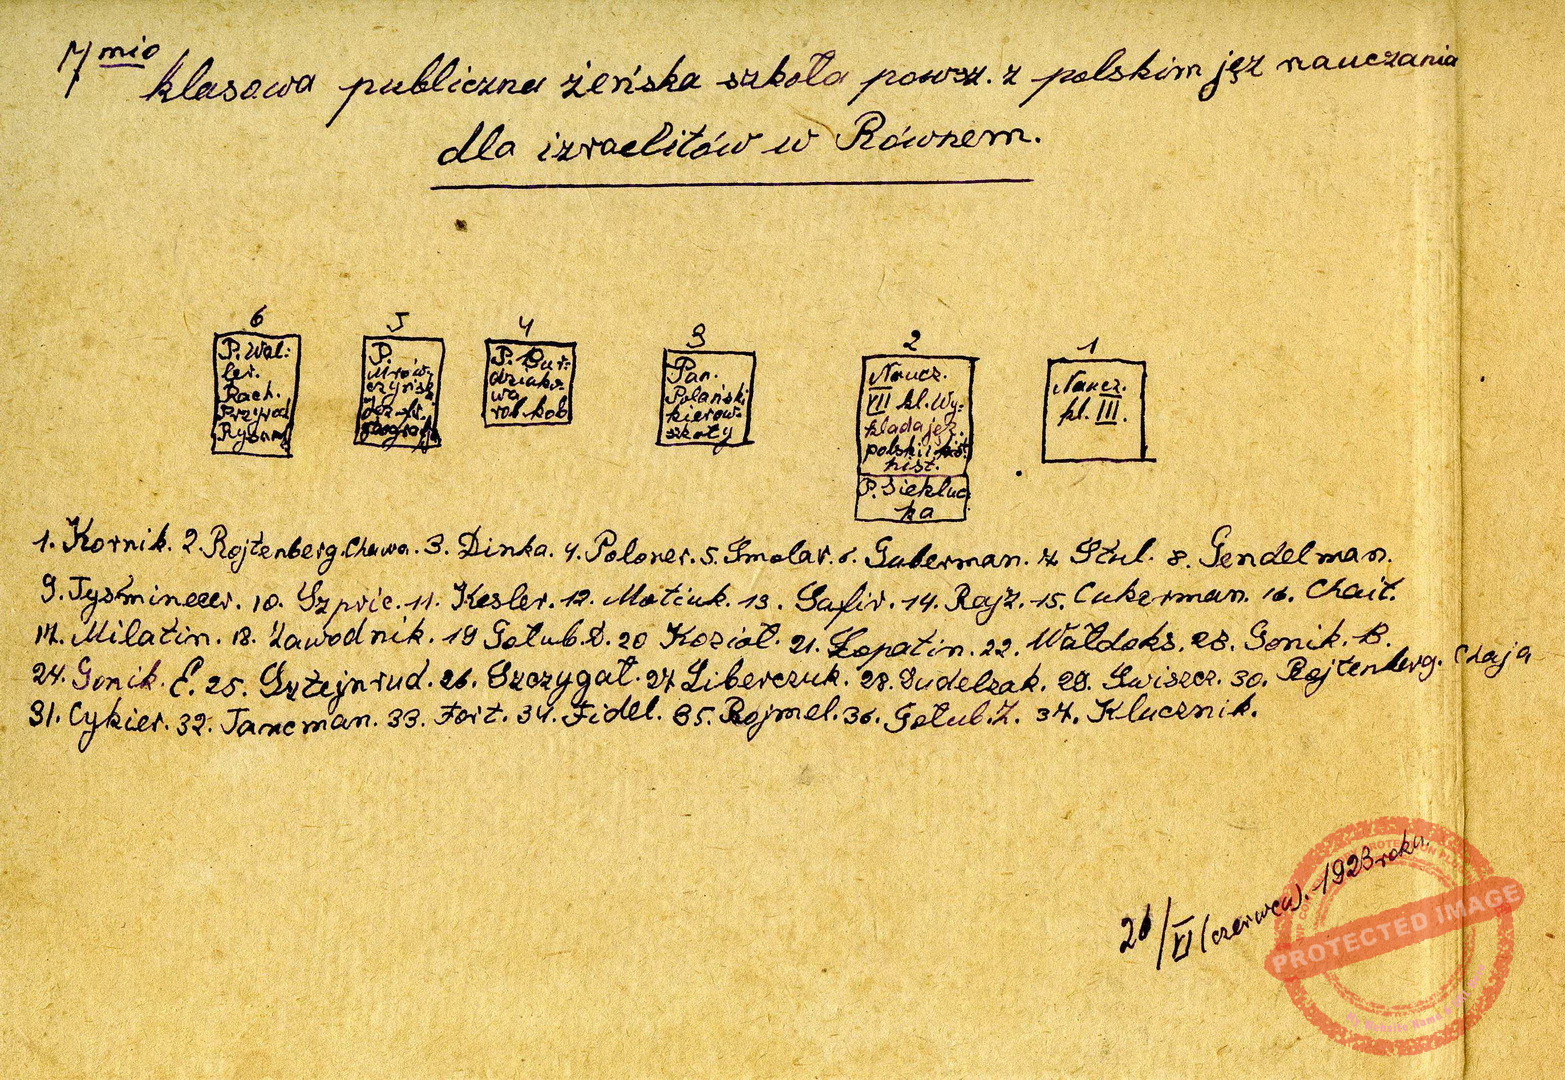 7mio klasowa publiczna żeńska szkoła powsz. z polskim jęz nauczania
dla izraelitów w Równem.
6
P. Wal:
ler.
Rach.
Przyrod
Rysunk
5
P.
Mrów:
czyńsk
geografja
4
P. Bur:
dziako:
wa
rob. kob
3
Pan.
Polański
kierow.
szkoły
2
Naucz.
VII kl. Wy:
kłada jęz.
polski i
hist.
P. Siekluc
ka
1
Naucz.
kl. III.
1. Kornik. 2. Rojtenberg. Chawa. 3. Dinka. 4. Poloner. 5. Smolar. 6. Guberman. 7. Sztul. 8. Gendelman.
9. Tyśminecer. 10. Szpric. 11. Kesler. 12. Motiuk. 13. Safir. 14. Rajz. 15. Cukerman. 16. Chait.
17. Milatin. 18. Zawodnik. 19 Gołub. D. 20 Kozioł. 21. Łopatin. 22. Wałdoks. 23. Gonik. B.
24. Gonik. E. 25. Sztejnrud. 26. Szczygał. 27 Liberczuk. 28. Dudelzak. 29. Swiszcz. 30. Rojtenberg. Chaja
31. Cykier. 32. Tancman. 33. Fort. 34. Fidel. 35. Rojmel. 36. Gołub. Z. 37. Klucznik.
26/VI (czerwca). 1923 roku.
PROTECTED IMAGE